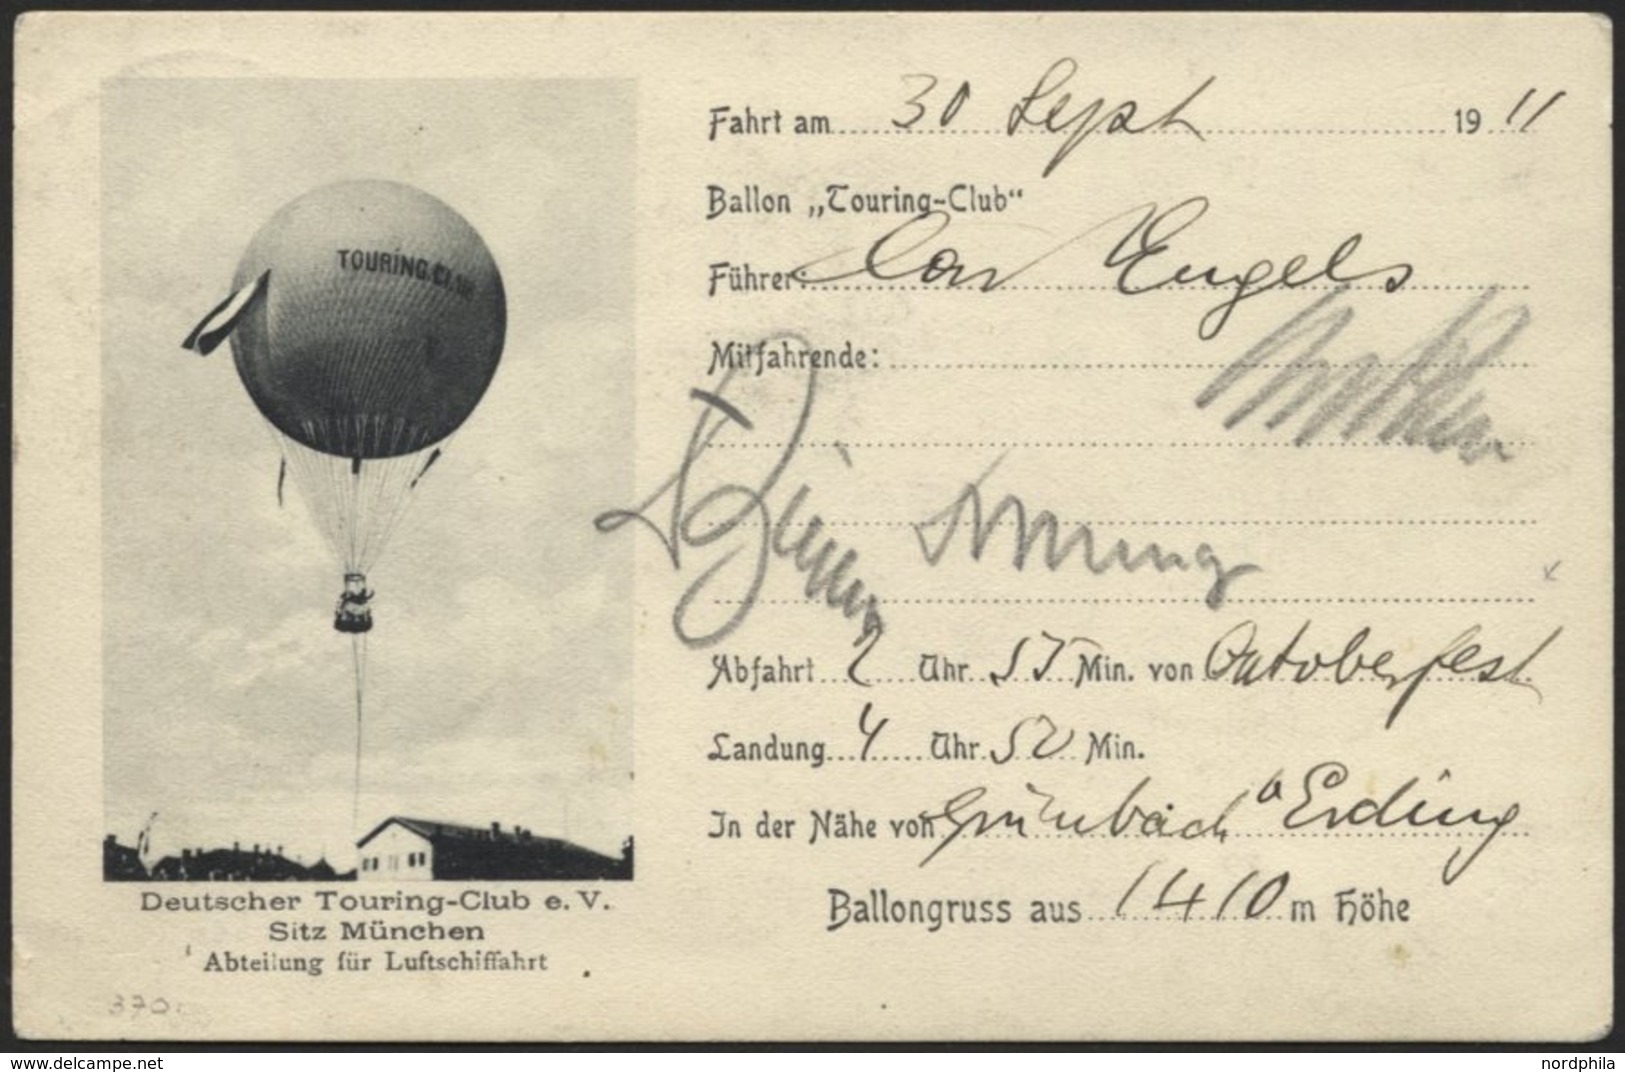 TOURING CLUB
Deutscher Touring-Club e. V.
Sitz München
Abteilung für Luftschiffahrt
370.
Fahrt am 30 Sept 1911
Ballon „Touring-Club“
Führer: Engels
Mitfahrende:
Abfahrt 2 Uhr 55 Min. von Oktoberfest
Landung 4 Uhr 50 Min.
In der Nähe von Grünbach b Erding
Ballongruss aus 1410 m Höhe
www.delcampe.net
nordphila